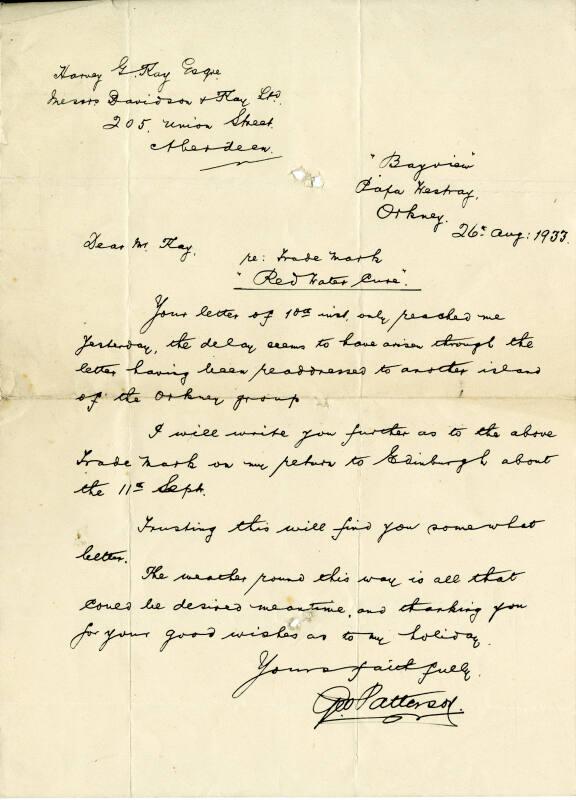 Harvey G. Kay Esqre
Messrs Davidson & Kay Ltd.
205, Union Street.
Aberdeen.
"Bayview"
Papa Westray,
Orkney.
26th Aug: 1933.
Dear Mr. Kay.
re: Trade Mark
"Red Water Cure".
Your letter of 10th inst. only reached me
yesterday, the delay seems to have arisen through the
letter having been readdressed to another island
of the Orkney group
I will write you further as to the above
Trade Mark on my return to Edinburgh about
the 11th Sept.
Trusting this will find you somewhat
better.
The weather round this way is all that
could be desired meantime, and thanking you
for your good wishes as to my holiday.
Yours faithfully.
Geo Patterson.